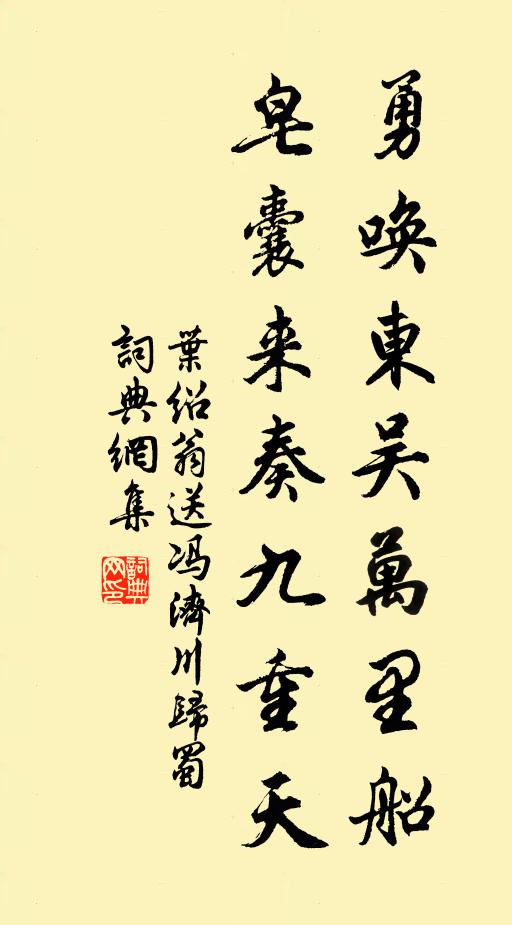 勇唤東吴萬里船
皂囊来奏九重天
葉紹翁送冯濟川歸蜀
詞典網集
詞典网印